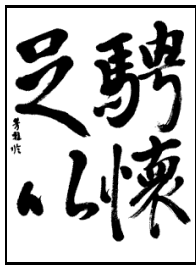 騁懷
足以